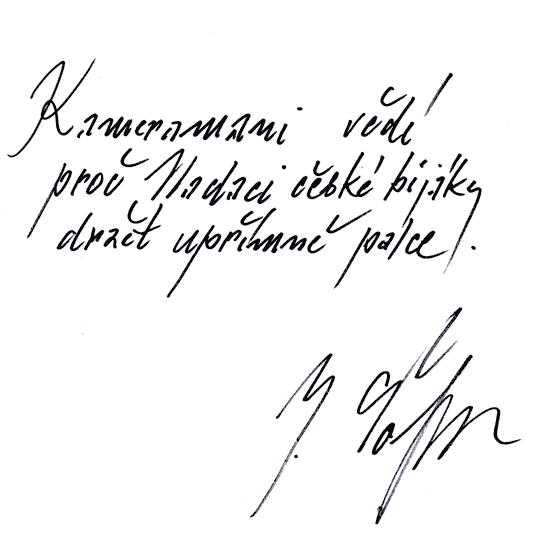 Kameramani vědí
proč Nadaci české bijáky
držet upřímně palce.
J.